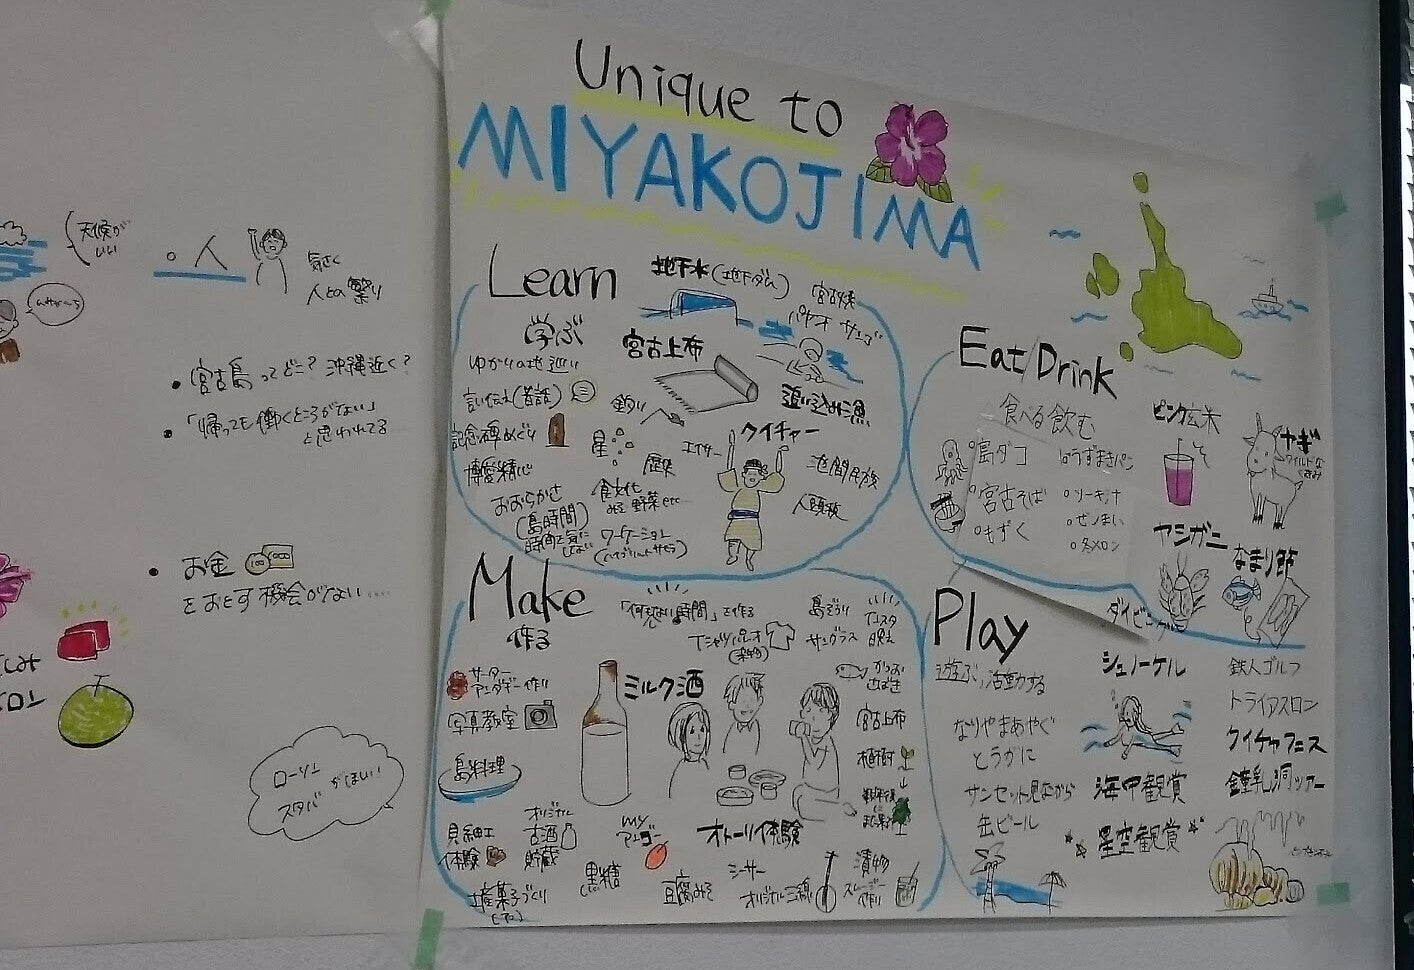 天候が
いい
人
気さく
人との繋り
・宮古島ってどこ？沖縄近く？
・「帰っても働くところがない」
と思われてる
・お金
をおとす機会がない……
メロン
ローソン
スタバがほしい
Unique to
MIYAKOJIMA
Learn
学ぶ
地下水(地下ダム)
パヤオ
サンゴ
宮古上布
ゆかりの地巡り
言い伝え(昔話)
釣り
追い込み漁
記念碑めぐり
星
エイサー
クイチャー
博愛精心
歴史
池間民族
おおらかさ
(島時間)
食文化
みそ 野菜 etc
人頭税
ワーケーション
Eat/Drink
食べる飲む
島ダコ
うずまきパン
宮古そば
ソーキ汁
もずく
ぜんまい
冬メロン
ピンク玄米
ヤギ
ヤシガニ
なまり節
Make
作る
「何もない時間」を作る
島ぞうり
Tシャツ
サングラス
サーター
アンダギー作り
ミルク酒
写真教室
宮古上布
植樹
島料理
オリジナル
古酒
貯蔵
貝細工
体験
my
オトーリ体験
黒糖
豆腐みそ
シーサー
オリジナル三線
漬物
スムージー
作り
土産菓子づくり
Play
遊ぶ,活動する
ダイビング
シュノーケル
鉄人ゴルフ
トライアスロン
なりやまあやぐ
とうがに
クイチャフェス
サンセット見ながら
缶ビール
海中観賞
鍾乳洞ツアー
星空観賞